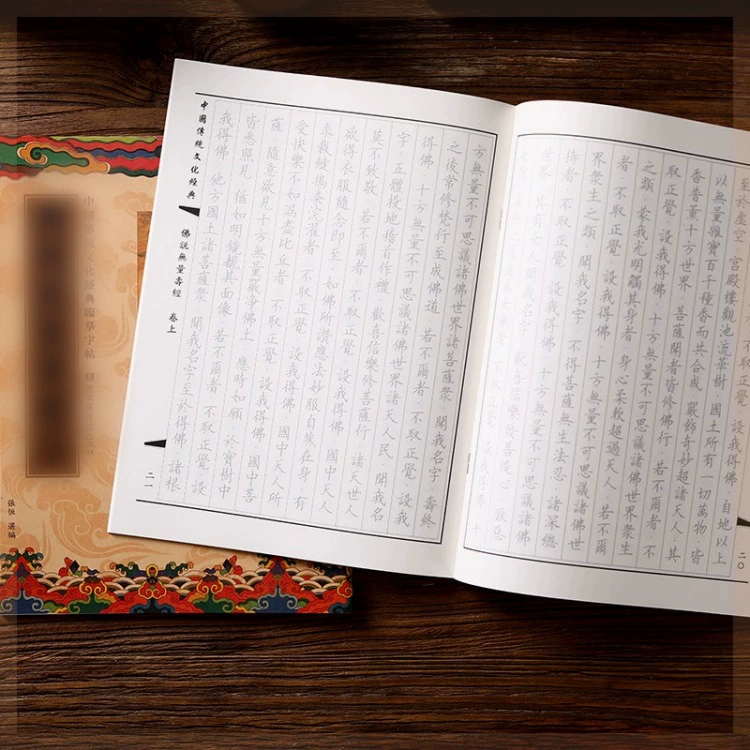 不取正覺 設我得佛 自地以上
至於虛空 宮殿樓觀池流華樹 國土所有一切萬物 皆
以無量雜寶百千種香而共合成 嚴飾奇妙超諸天人 其
香普薰十方世界 菩薩聞者皆修佛行 若不爾者 不
取正覺 設我得佛 十方無量不可思議諸佛世界眾生
之類 蒙我光明觸其身者 身心柔軟超過天人 若不爾
者 不取正覺 設我得佛 十方無量不可思議諸佛世
界眾生之類 聞我名字 不得菩薩無生法忍 諸深總
持者 不取正覺 設我得佛 十方無量不可思議諸佛世
界 其有女人聞我名字 歡喜信樂發菩提心 厭惡
二〇
方無量不可思議諸佛世界諸菩薩眾 聞我名字 壽終
之後常修梵行至成佛道 若不爾者 不取正覺 設我
得佛 十方無量不可思議諸佛世界諸天人民 聞我名
字 五體投地稽首作禮 歡喜信樂修菩薩行 諸天世人
莫不致敬 若不爾者 不取正覺 設我得佛 國中天人
欲得衣服隨念即至 如佛所讚應法妙服自然在身 有
求裁縫擣染浣濯者 不取正覺 設我得佛 國中天人所
受快樂不如漏盡比丘者 不取正覺 設我得佛 國中菩
薩 隨意欲見十方無量嚴淨佛土 應時如願 於寶樹中
皆悉照見 猶如明鏡覩其面像 若不爾者 不取正覺 設
我得佛 他方國土諸菩薩眾 聞我名字至於得佛 諸根
中國傳統文化經典
佛說無量壽經 卷上
二一
張恒 選編